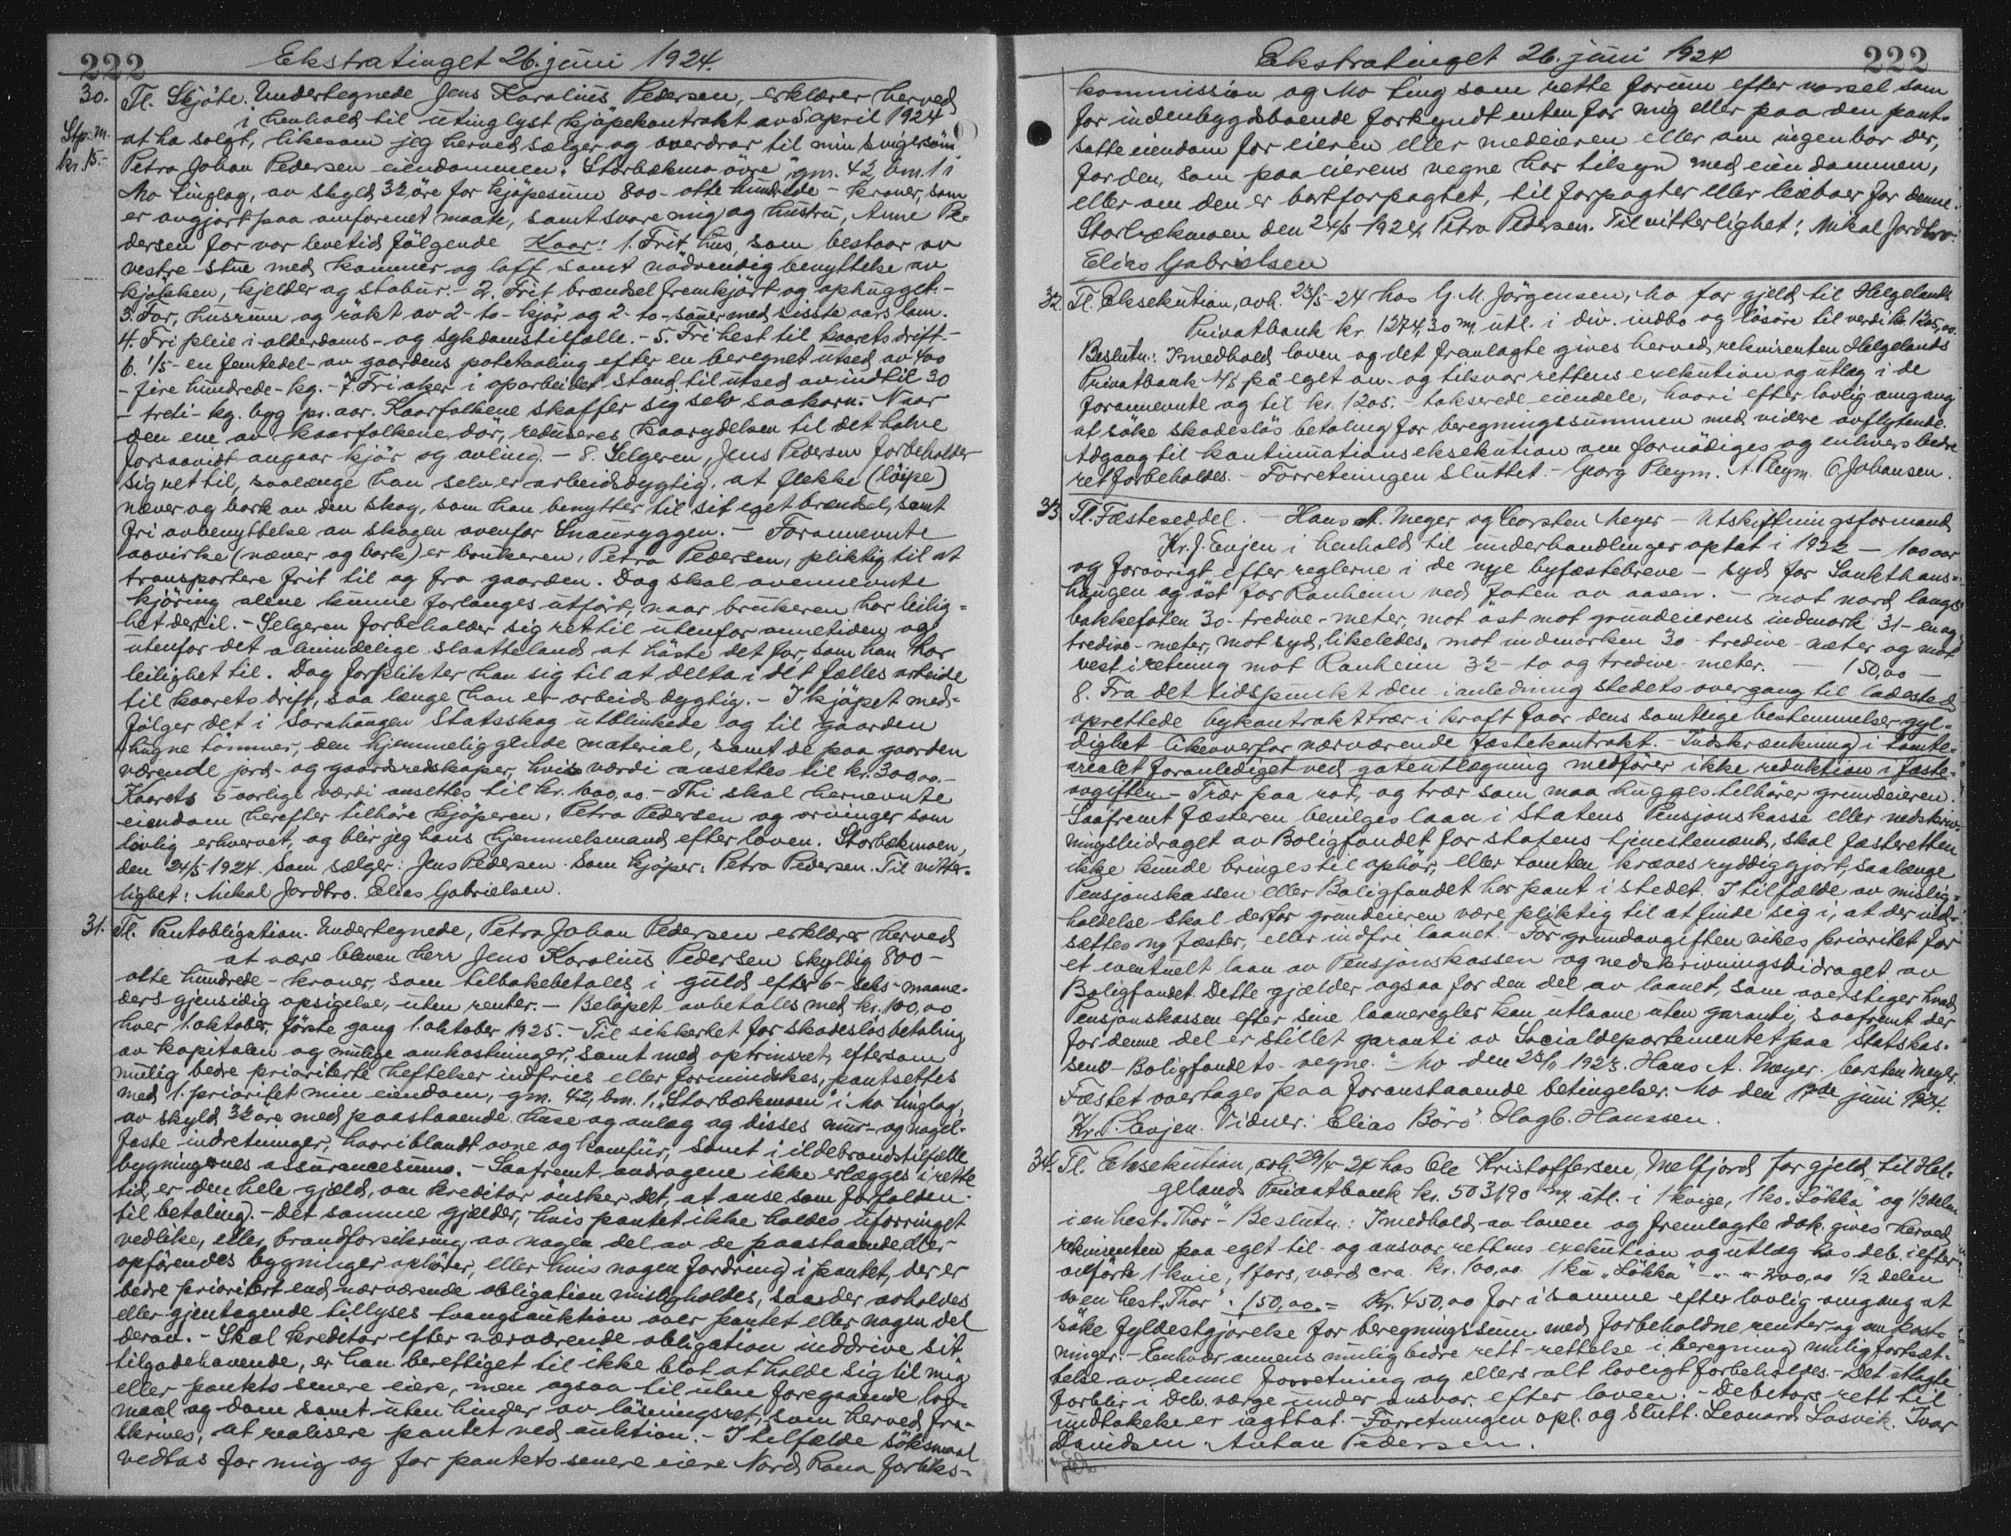 222
Ekstratinget 26. juni 1924.
30. Tl. Skjöte. Undertegnede Jens Karolius Pedersen, erklærer herved
Stp. m. i henhold til utinglyst kjöpekontrakt av 5 april 1924
kr. 15.- at ha solgt, likesom jeg herved sælger og overdrar til min svigersön
Petro Johan Pedersen eiendommen "Storbækmo övre", gm. 42, bm. 1 i
Mo tinglag, av skyld 32 öre for kjöpesum 800 - otte hundrede - kroner, som
er avgjort paa omforenet maate, samt svare mig og hustru, Anne Pe-
dersen for vor levetid fölgende Kaar: 1. Frit hus, som bestaar av
vestre stue med kammer og loft samt nödvendig benyttelse av
kjökken, kjelder og stabur. - 2. Frit brændsel fremkjört og ophugget. -
3. For, husrum og rökt av 2 - to - kjör og 2 - to - sauer med sisste aars lam.
4. Fri pleie i alderdoms- og sykdomstilfælle. - 5. Fri hest til kaarets drift. -
6. 1/5 - en femtedel - av gaardens potetavling efter en beregnet utsed av 400
- fire hundrede - kg. - 7. Fri aker i oparbeidet stand til utsed av indtil 30
- treti - kg. bygg pr. aar. Kaarfolkene skaffer sig selv saakorn. Naar
den ene av kaarfolkene dör, reduseres kaarydelsen til det halve
forsaavidt angaar kjör og avling. - 8. Selgeren, Jens Pedersen forbeholder
sig ret til, saalænge han selv er arbeidsdygtig, at flekke (löipe)
næver og bork av den skog, som han benytter til sit eget brændsel, samt
fri avbenyttelse av skogen ovenfor Snauryggen. - Forannevnte
aavirke (næver og bork) er brukeren, Petro Pedersen, pliktig til at
transportere frit til og fra gaarden. Dog skal ovennevnte
kjöring alene kunne forlanges utfört, naar brukeren har leilig-
het dertil. - Selgeren forbeholder sig ret til utenfor onnetiden og
utenfor det almindelige slaatteland at höste det for, som han har
leilighet til. Dog forplikter han sig til at delta i det fælles arbeide
til kaarets drift, saa længe han er arbeidsdygtig. - I kjöpet med-
fölger det i Sorahaugen Statsskog utblinkede og til gaarden
hugne tömmer, den hjemmeliggende material, samt de paa gaarden
værende jord- og gaardsredskaper, hvis værdi ansettes til kr. 300,00. -
Kaarets 5 aarlige værdi ansettes til kr. 600,00. - Thi skal hernevnte
eiendom herefter tilhöre kjöperen, Petro Pedersen og arvinger som
lovlig erhvervet, og blir jeg hans hjemmelsmand efter loven. Storbækmoen,
den 24/5-1924. Som sælger: Jens Pedersen. Som kjöper: Petro Pedersen. Til vitter-
lighet: Mikal Jordbro. Elias Gabrielsen.
31. Tl. Pantobligation. Undertegnede, Petro Johan Pedersen erklærer herved
at være bleven herr Jens Karolius Pedersen skyldig 800 -
otte hundrede - kroner, som tilbakebetales i guld efter 6 - seks - maane-
ders gjensidig opsigelse, uten renter. - Belöpet avbetales med kr. 100,00
hver 1. oktober, förste gang 1. oktober 1925. - Til sikkerhet for skadeslös betaling
av kapitalen og mulige omkostninger, samt med optrinsret, eftersom
mulig bedre prioriterte heftelser indfries eller formindskes, pantsettes
med 1. prioritet min eiendom, gm. 42, bm. 1, "Storbækmoen" i Mo tinglag,
av skyld 32 öre med paastaaende huse og anlæg og disses mur- og nagel-
faste indretninger, hvoriblandt ovne og komfur, samt i ildebrandstilfælle
bygningernes assurancesum. - Saafremt avdragene ikke erlægges i rette
tid, er den hele gjæld, om kreditor önsker det, at anse som forfalden
til betaling. - Det samme gjælder, hvis pantet ikke holdes uforringet
vedlike, eller brandforsikring av nogen del av de paastaaende eller
opförendes bygninger ophörer, eller hvis nogen fordring i pantet, der er
bedre prioritert end nærværende obligation misligholdes, saa der avholdes
eller gjentagende tillyses tvangsauktion over pantet eller nogen del
derav. - Skal kreditor efter nærværende obligation inddrive sit
tilgodehavende, er han berettiget til ikke blot at holde sig til mig
eller pantets senere eiere, men ogsaa til uten foregaaende lov-
maal og dom samt uten hinder av lösningsret, som herved fra-
skrives, at realisere pantet ved auktion. - I tilfælde söksmaal
vedtas for mig og for pantets senere eiere Nord Rana forliks-
222
Ekstratinget 26. juni 1924
kommission og Mo ting som rette forum efter varsel som
for indenbygdsboende forkyndt enten for mig eller paa den pant-
satte eiendom for eieren eller medeieren eller om ingen bor der,
for den, som paa eierens vegne har tilsyn med eiendommen,
eller om den er bortforpagtet, til forpagter eller leieboer for denne.
Storbækmoen den 24/5-1924. Petro Pedersen. Til vitterlighet: Mikal Jordbro.
Elias Gabrielsen
32. Tl. Eksekution, avh. 23/5-24 hos G. M. Jörgensen, Mo for gjeld til Helgelands
Privatbank kr. 1274,30 m. utl. i div. indbo og lösöre til verdi kr. 1205,00.
Beslutn.: I medhold loven og det fremlagte gives herved rekvirenten Helgelands
Privatbank A/S på eget an- og tilsvar rettens exekution og utlæg i de
forannevnte og til kr. 1205. - takserede eiendele, hvori efter lovlig omgang
at söke skadeslös betaling for beregningssummen med videre avflytende.
Adgang til kontinuationseksekution om fornödiges og enhvers bedre
ret forbeholdes. - Forretningen sluttet. - Georg Pleym. A. Pleym. O. Johansen.
33. Tl. Fæsteseddel. - Hans A. Meyer og Corsten Meyer - Utskiftningsformand
Kr. J. Evjen i henhold til underhandlinger optat i 1922 - 100 aar
og forövrigt efter reglerne i de nye byfæstebreve - syd for Sankthans-
haugen og öst for Ranheim ved foten av aasen. - mot nord langs
bakkefoten 30 - tredive - meter, mot öst mot grundeierens indmark 31 - en og
tredive - meter, mot syd, likeledes, mot indmarken 30 - tredive - meter og mot
vest i retning mot Ranheim 32 - to og tredive - meter. - 150,00 -
8. Fra det tidspunkt den i anledning stedets overgang til ladested
oprettede bykontrakt trær i kraft faar dens samtlige bestemmelser gyl-
dighet likeoverfor nærværende fæstekontrakt. - Indskrænkning i tomte-
arealet foranlediget ved gateutlægning medförer ikke reduktion i fæste-
avgiften. - Trær paa rot, og trær som maa hugges tilhörer grundeieren.
Saafremt fæsteren bevilges laan i Statens Pensjonskasse eller nedskriv-
ningsbidraget av Boligfondet for statens tjenestemænd, skal fæsteretten
ikke kunde bringes til ophör, eller tomten kræves ryddiggjort, saalænge
Pensjonskassen eller Boligfondet har pant i stedet. I tilfælde av mislig-
holdelse skal derfor grundeieren være pliktig til at finde sig i, at der ind-
sættes ny fæster, eller indfri laanet. - For grundavgiften vikes prioritet for
et eventuelt laan av Pensjonskassen og nedskrivningsbidraget av
Boligfondet. Dette gjælder ogsaa for den del av laanet, som overstiger hvad
Pensjonskassen efter sine laaneregler kan utlaane uten garanti, saafremt der
for denne del er stillet garanti av Socialdepartementet paa Statskas-
sens - Boligfondets - vegne. - Mo den 23/11 1923. Hans A. Meyer. Corsten Meyer.
Fæstet overtages paa foranstaaende betingelser. Mo den 17de juni 1924.
Kr. P. Evjen. Vidner: Elias Börö. Hagb. Hanssen.
34. Tl. Eksekution, avh. 29/4-24 hos Ole Kristoffersen, Melfjord for gjeld til Hel-
gelands Privatbank kr. 503,90 m. utl. i 1 kvige, 1 ko "Lökka" og 1/2 delen
i en hest "Thor" - Beslutn.: I medhold av loven og fremlagte dok. gives herved
rekvirenten paa eget til- og ansvar rettens exekution og utlæg hos deb. i efter
anförte 1 kvie, 1 fors, værd cra. kr. 100,00. 1 ku "Lökka" - " - " 200,00 1/2 delen
av en hest "Thor": 150,00. = Kr. 450,00 for i samme efter lovlig omgang at
söke fyldestgjörelse for beregningssum med forbeholdne renter og omkost-
ninger. - Enhver annens mulig bedre rett - rettelse i beregning mulig fortsæt-
telse av denne forretning og ellers alt lovligt forbeholdes. - Det utlagte
forblir i Deb. værge under ansvar efter loven. - Debitors rett til
undtakelse er iagttat. - Forretningen opl. og slutt. Leonard Lasvik. Ivar
Davidsen. Anton Pedersen.